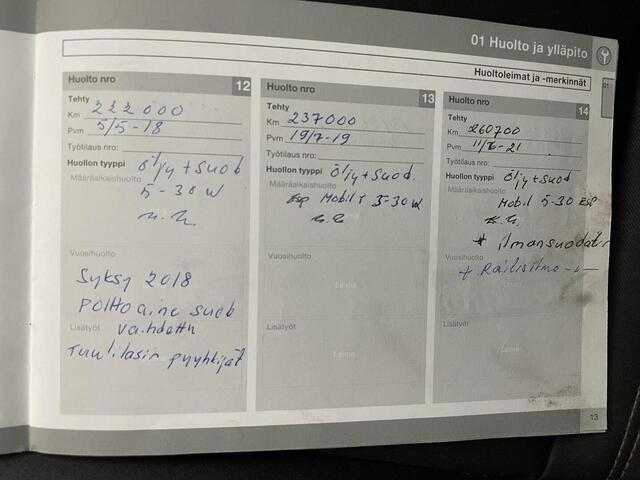 01 Huolto ja ylläpito
Huoltoleimat ja -merkinnät
01
Huolto nro 12
Tehty
Km 222 000
Pvm 5/5-18
Työtilaus nro:
Huollon tyyppi Öljy + suod
Määräaikaishuolto
5-30 W
Vuosihuolto
Syksy 2018
Polttoaine suod
Lisätyöt vaihdettu
Tuulilasin pyyhkijät
Huolto nro 13
Tehty
Km 237000
Pvm 19/7-19
Työtilaus nro:
Huollon tyyppi Öljy + suod.
Määräaikaishuolto
ESP Mobil 1 5-30 W
Leima
Vuosihuolto
Leima
Lisätyöt
Leima
Huolto nro 14
Tehty
Km 260700
Pvm 11/6-21
Työtilaus nro:
Huollon tyyppi Öljy + suod
Määräaikaishuolto
Mobil 5-30 ESP
+ ilmansuodatin
Vuosihuolto
Leima
Lisätyöt
Leima
13